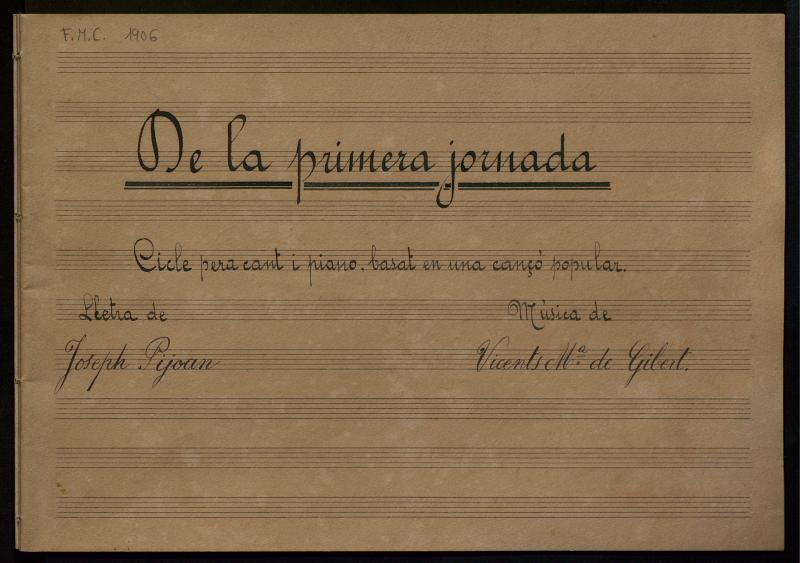 F.M.C. 1906
De la primera jornada
Cicle pera cant i piano, basat en una cançó popular.
Lletra de Música de
Joseph Pijoan Vicents Mª de Gibert.